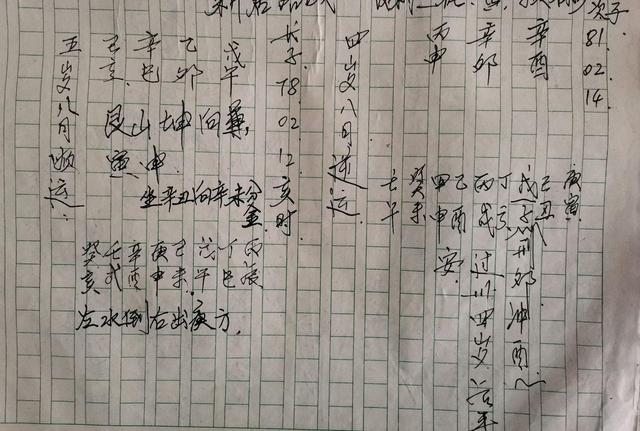 次子
81
02
14
辛酉
辛卯
丙申
四岁八月逆运
庚寅
己丑
戊子
丁亥
丙戌
乙酉
甲申
癸未
壬午
子刑卯冲酉
过川四岁
安
长子
78
02
12
亥时
戊午
乙卯
辛巳
己亥
五岁八月顺运
艮山坤向兼
寅申
坐辛丑向辛未分金
丙辰
丁巳
戊午
己未
庚申
辛酉
壬戌
癸亥
左水倒右出庚方